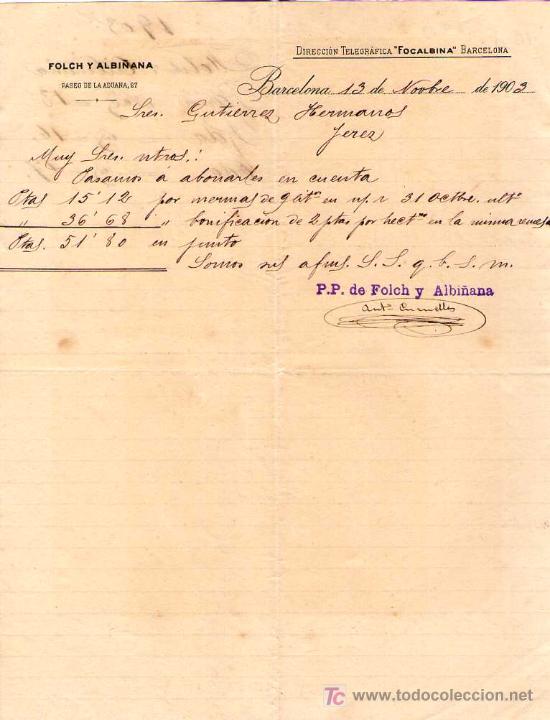 DIRECCIÓN TELEGRÁFICA "FOCALBINA" BARCELONA
FOLCH Y ALBIÑANA
PASEO DE LA ADUANA, 27
Barcelona 13 de Novbre de 1903
Sres. Gutiérrez Hermanos
Jerez
Muy Sres. ntros.:
Pasamos á abonarles en cuenta
Ptas 15'12 por mermas de en 31 Octbre. ulto
" 36'68 " bonificación de 2 ptas por hect en la misma
Ptas. 51'80 en junto
Somos ss afms. S. S. q. b. s. m.
P.P. de Folch y Albiñana
TC www.todocoleccion.net